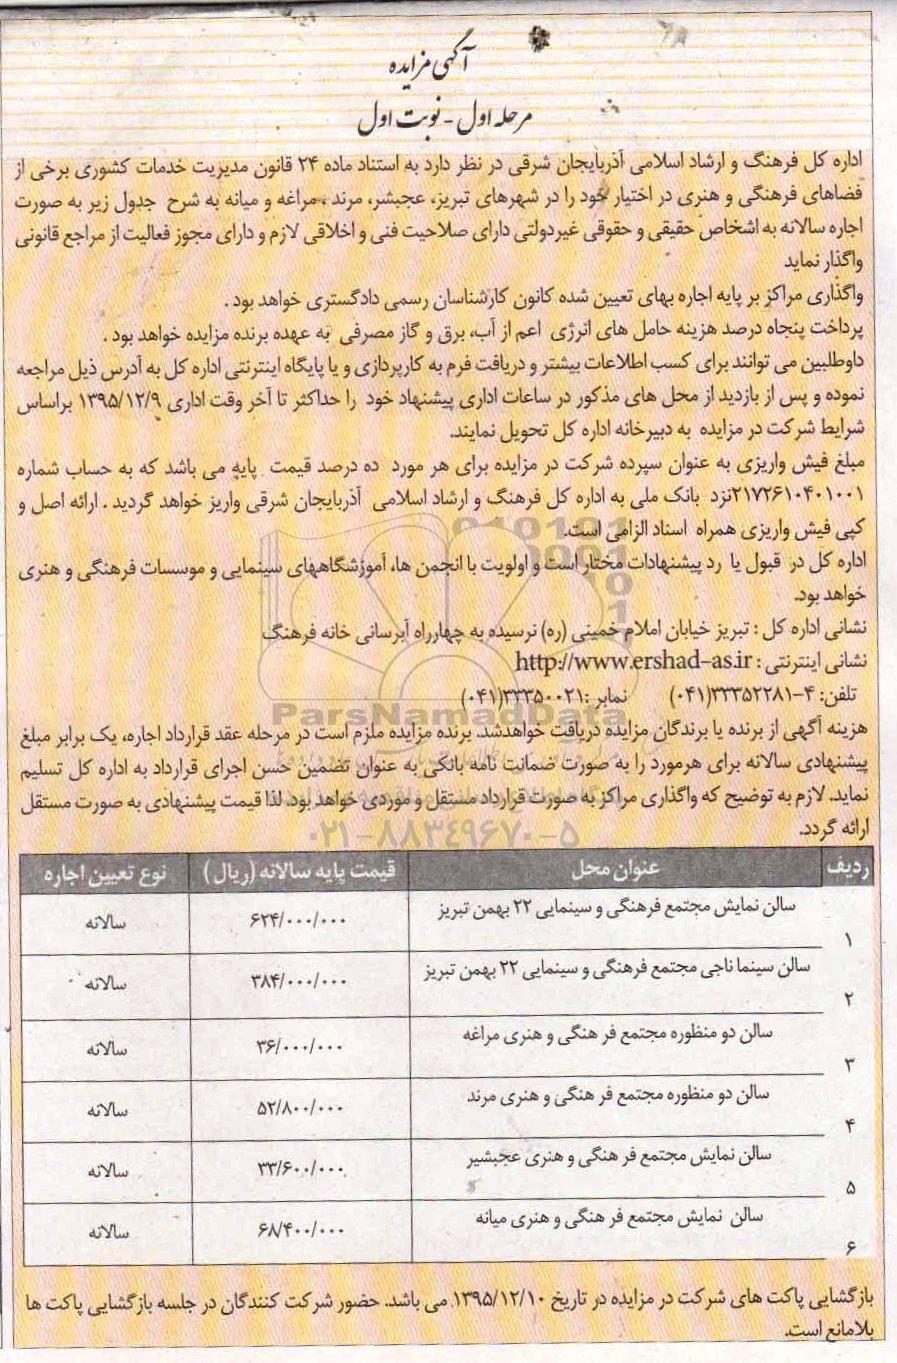 آگهی مزایده
مرحله اول - نوبت اول
اداره کل فرهنگ و ارشاد اسلامی آذربایجان شرقی در نظر دارد به استناد ماده ۲۴ قانون مدیریت خدمات کشوری برخی از
فضاهای فرهنگی و هنری در اختیار خود را در شهرهای تبریز، عجبشر، مرند ، مراغه و میانه به شرح جدول زیر به صورت
اجاره سالانه به اشخاص حقیقی و حقوقی غیردولتی دارای صلاحیت فنی و اخلاقی لازم و دارای مجوز فعالیت از مراجع قانونی
واگذار نماید
واگذاری مراکز بر پایه اجاره بهای تعیین شده کانون کارشناسان رسمی دادگستری خواهد بود .
پرداخت پنجاه درصد هزینه حامل های انرژی اعم از آب، برق و گاز مصرفی به عهده برنده مزایده خواهد بود .
داوطلبین می توانند برای کسب اطلاعات بیشتر و دریافت فرم به کارپردازی و یا پایگاه اینترنتی اداره کل به آدرس ذیل مراجعه
نموده و پس از بازدید از محل های مذکور در ساعات اداری پیشنهاد خود را حداکثر تا آخر وقت اداری ۱۳۹۵/۱۲/۹ براساس
شرایط شرکت در مزایده به دبیرخانه اداره کل تحویل نمایند.
مبلغ فیش واریزی به عنوان سپرده شرکت در مزایده برای هر مورد ده درصد قیمت پایه می باشد که به حساب شماره
۲۱۷۲۶۱۰۴۰۱۰۰۱نزد بانک ملی به اداره کل فرهنگ و ارشاد اسلامی آذربایجان شرقی واریز خواهد گردید . ارائه اصل و
کپی فیش واریزی همراه اسناد الزامی است.
اداره کل در قبول یا رد پیشنهادات مختار است و اولویت با انجمن ها، آموزشگاههای سینمایی و موسسات فرهنگی و هنری
خواهد بود.
نشانی اداره کل : تبریز خیابان املام خمینی (ره) نرسیده به چهارراه آبرسانی خانه فرهنگ
نشانی اینترنتی : http://www.ershad-as.ir
تلفن: ۴-۳۳۳۵۲۲۸۱(۰۴۱) نمابر :۳۳۳۵۰۰۲۱(۰۴۱)
ParsNamadData
هزینه آگهی از برنده یا برندگان مزایده دریافت خواهدشد. برنده مزایده ملزم است در مرحله عقد قرارداد اجاره، یک برابر مبلغ
پیشنهادی سالانه برای هرمورد را به صورت ضمانت نامه بانکی به عنوان تضمین حسن اجرای قرارداد به اداره کل تسلیم
نماید. لازم به توضیح که واگذاری مراکز به صورت قرارداد مستقل و موردی خواهد بود. لذا قیمت پیشنهادی به صورت مستقل
ارائه گردد.
۰۲۱-۸۸۳۴۹۶۷۰-۵
ردیف عنوان محل قیمت پایه سالانه (ریال) نوع تعیین اجاره
۱ سالن نمایش مجتمع فرهنگی و سینمایی ۲۲ بهمن تبریز ۶۲۴/۰۰۰/۰۰۰ سالانه
۲ سالن سینما ناجی مجتمع فرهنگی و سینمایی ۲۲ بهمن تبریز ۳۸۴/۰۰۰/۰۰۰ سالانه
۳ سالن دو منظوره مجتمع فر هنگی و هنری مراغه ۳۶/۰۰۰/۰۰۰ سالانه
۴ سالن دو منظوره مجتمع فر هنگی و هنری مرند ۵۲/۸۰۰/۰۰۰ سالانه
۵ سالن نمایش مجتمع فر هنگی و هنری عجبشیر ۳۳/۶۰۰/۰۰۰ سالانه
۶ سالن نمایش مجتمع فر هنگی و هنری میانه ۶۸/۴۰۰/۰۰۰ سالانه
بازگشایی پاکت های شرکت در مزایده در تاریخ ۱۳۹۵/۱۲/۱۰ می باشد. حضور شرکت کنندگان در جلسه بازگشایی پاکت ها
بلامانع است.